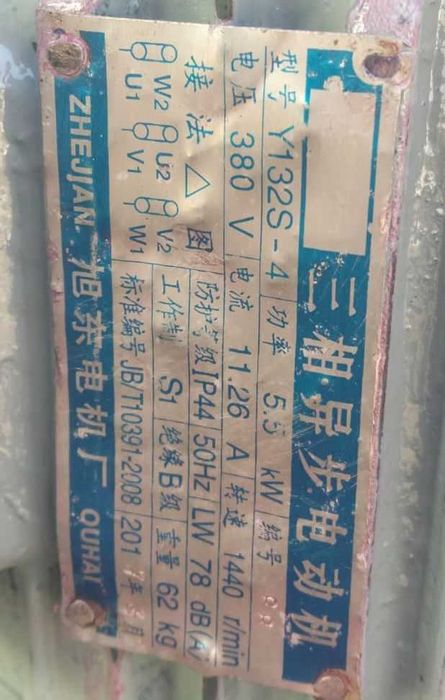 三相异步电动机
型号 Y132S-4 功率 5.5 kW 编号
电压 380 V 电流 11.26 A 转速 1440 r/min
接法 △ 图 防护等级 IP44 50Hz LW 78 dB(A)
W2 U2 V2 工作制 S1 绝缘B级 重量 62 kg
U1 V1 W1 标准编号 JB/T10391-2008 201 年 月
ZHEJIAN. 旭东电机厂 OUHAI